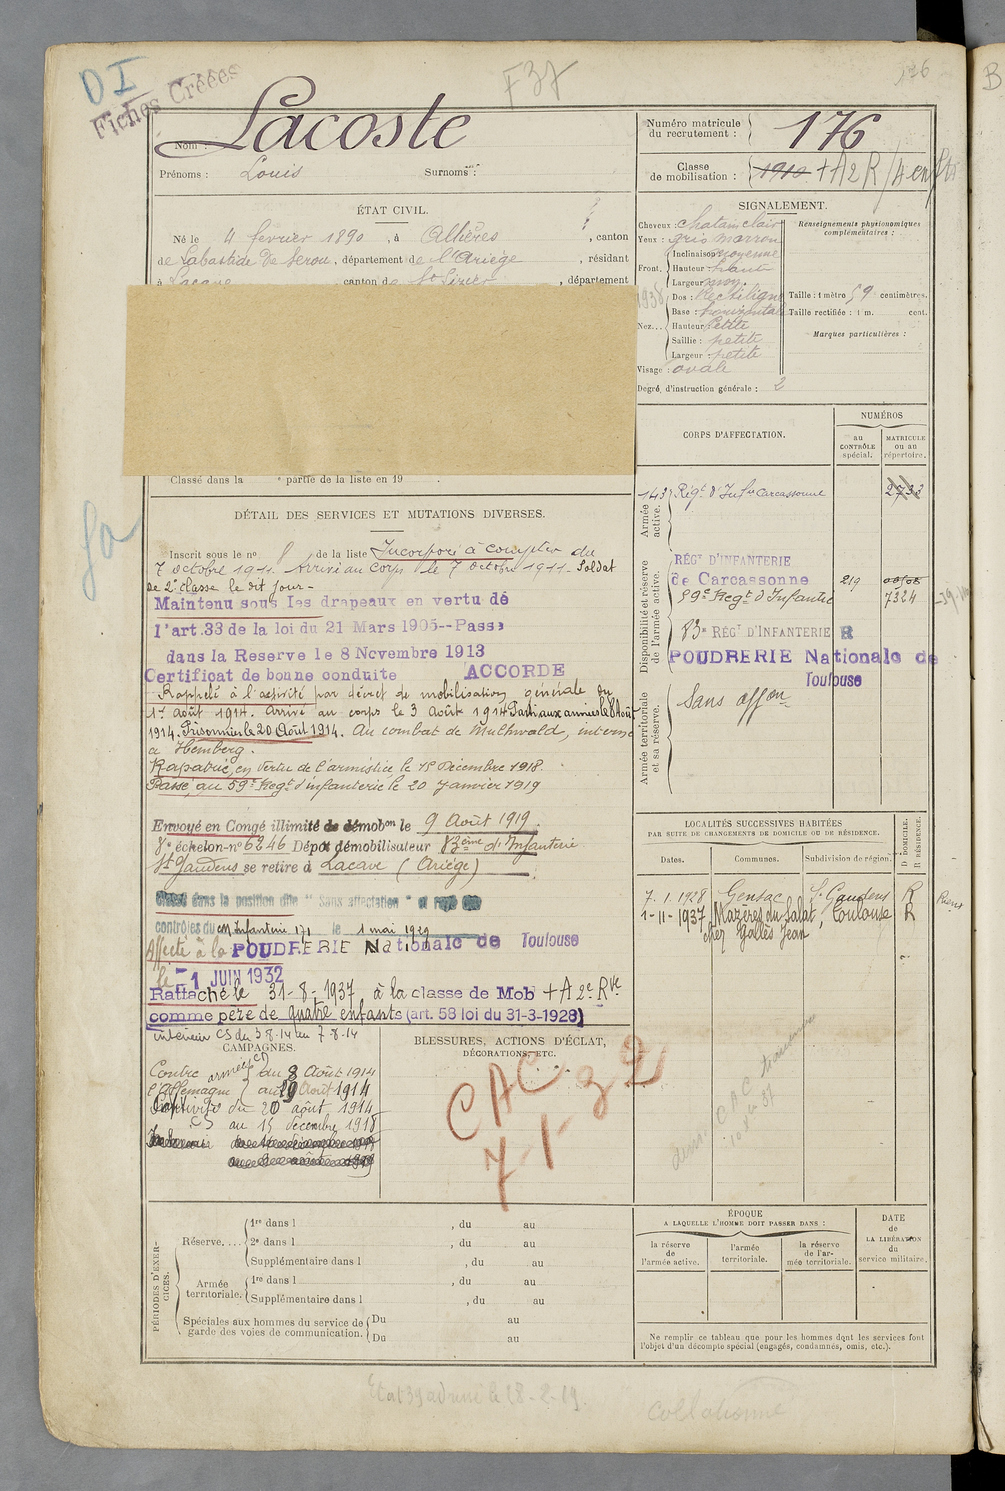 DI
Fiches Créées
F37
176
Nom : Lacoste
Prénoms : Louis Surnoms :
Numéro matricule du recrutement : 176
Classe de mobilisation : 1910 + A 2 R / 4 enfts
ÉTAT CIVIL.
Né le 4 février 1890, à Allières, canton
de Labastide de Serou, département de l'Ariège, résidant
à Lacave, canton de St Lizier, département
Classé dans la e partie de la liste en 19
SIGNALEMENT.
Cheveux : chatain clair
Yeux : gris marron
Front, Inclinaison : moyenne
Hauteur : haute
Largeur : moy.
Nez... Dos : Rectiligne
Base : horizontale
Hauteur : Petite
Saillie : petite
Largeur : petite
Visage : ovale
Renseignements physionomiques complémentaires :
Taille : 1 mètre 59 centimètres.
Taille rectifiée : 1 m. cent.
Marques particulières :
Degré d'instruction générale : 2
1938
DÉTAIL DES SERVICES ET MUTATIONS DIVERSES.
Inscrit sous le no de la liste Incorporé à compter du
7 octobre 1911. Arrivé au Corps le 7 octobre 1911. Soldat
de 2e classe le dit jour -
Maintenu sous les drapeaux en vertu de
l'art.33 de la loi du 21 Mars 1905--Passé
dans la Reserve le 8 Novembre 1913
Certificat de bonne conduite ACCORDE
Rappelé à l'activité par décret de mobilisation générale du
1er août 1914. Arrivé au corps le 3 Août 1914 Parti aux armées le 8 Août
1914. Prisonnier le 20 Août 1914. Au combat de Mulhwald, interné
à Hemberg.
Rapatrié, en vertu de l'armistice le 15 Décembre 1918.
Passé au 59e Regt d'infanterie le 20 Janvier 1919
Envoyé en Congé illimité de démobon le 9 Août 1919.
8e échelon-no 6246 Dépot démobilisateur 83ème d'Infanterie
St Gaudens se retire à Lacave (Ariège)
Classé dans la position dite "Sans affectation" et rayé des
contrôles du CM Infanterie 171 le 1 mai 1929
Affecté à la POUDRERIE Nationale de Toulouse
le -1 JUIN 1932
Rattaché le 31-8-1937 à la classe de Mob + A 2e Rve
comme père de quatre enfants (art. 58 loi du 31-3-1928)
CORPS D'AFFECTATION.
NUMÉROS
au CONTRÔLE spécial.
MATRICULE ou au répertoire.
Armée active.
143e Régt d'Infie Carcassonne 2733
Disponibilité et réserve de l'armée active.
RÉGt D'INFANTERIE
de Carcassonne 219
59e Regt d'Infanterie 7324
83e RÉGt D'INFANTERIE R
POUDRERIE Nationale de
Toulouse
Armée territoriale et sa réserve.
Sans affon
LOCALITÉS SUCCESSIVES HABITÉES
PAR SUITE DE CHANGEMENTS DE DOMICILE OU DE RÉSIDENCE.
Dates. Communes. Subdivision de région. D DOMICILE. R RÉSIDENCE.
7.1.1928 Gensac St Gaudens R
1-11-1937 Mazères du Salat, Toulouse R
chez Galles Jean
intérieur CS du 3.8.14 au 7.8.14
CAMPAGNES.
Contre l'Allemagne armées CD du 8 Août 1914
au 19 Août 1914
Captivité du 20 août 1914
CS au 15 décembre 1918
BLESSURES, ACTIONS D'ÉCLAT,
DÉCORATIONS, ETC.
CAC
7-1-32
PÉRIODES D'EXERCICES.
Réserve.... 1re dans l , du au
2e dans l , du au
Supplémentaire dans l , du au
Armée territoriale. 1re dans l , du au
Supplémentaire dans l , du au
Spéciales aux hommes du service de garde des voies de communication. Du au
Du au
ÉPOQUE
A LAQUELLE L'HOMME DOIT PASSER DANS :
la réserve de l'armée active.
l'armée territoriale.
la réserve de l'armée territoriale.
DATE de LA LIBÉRATION du service militaire.
Ne remplir ce tableau que pour les hommes dont les services font
l'objet d'un décompte spécial (engagés, condamnés, omis, etc.).
Collationné